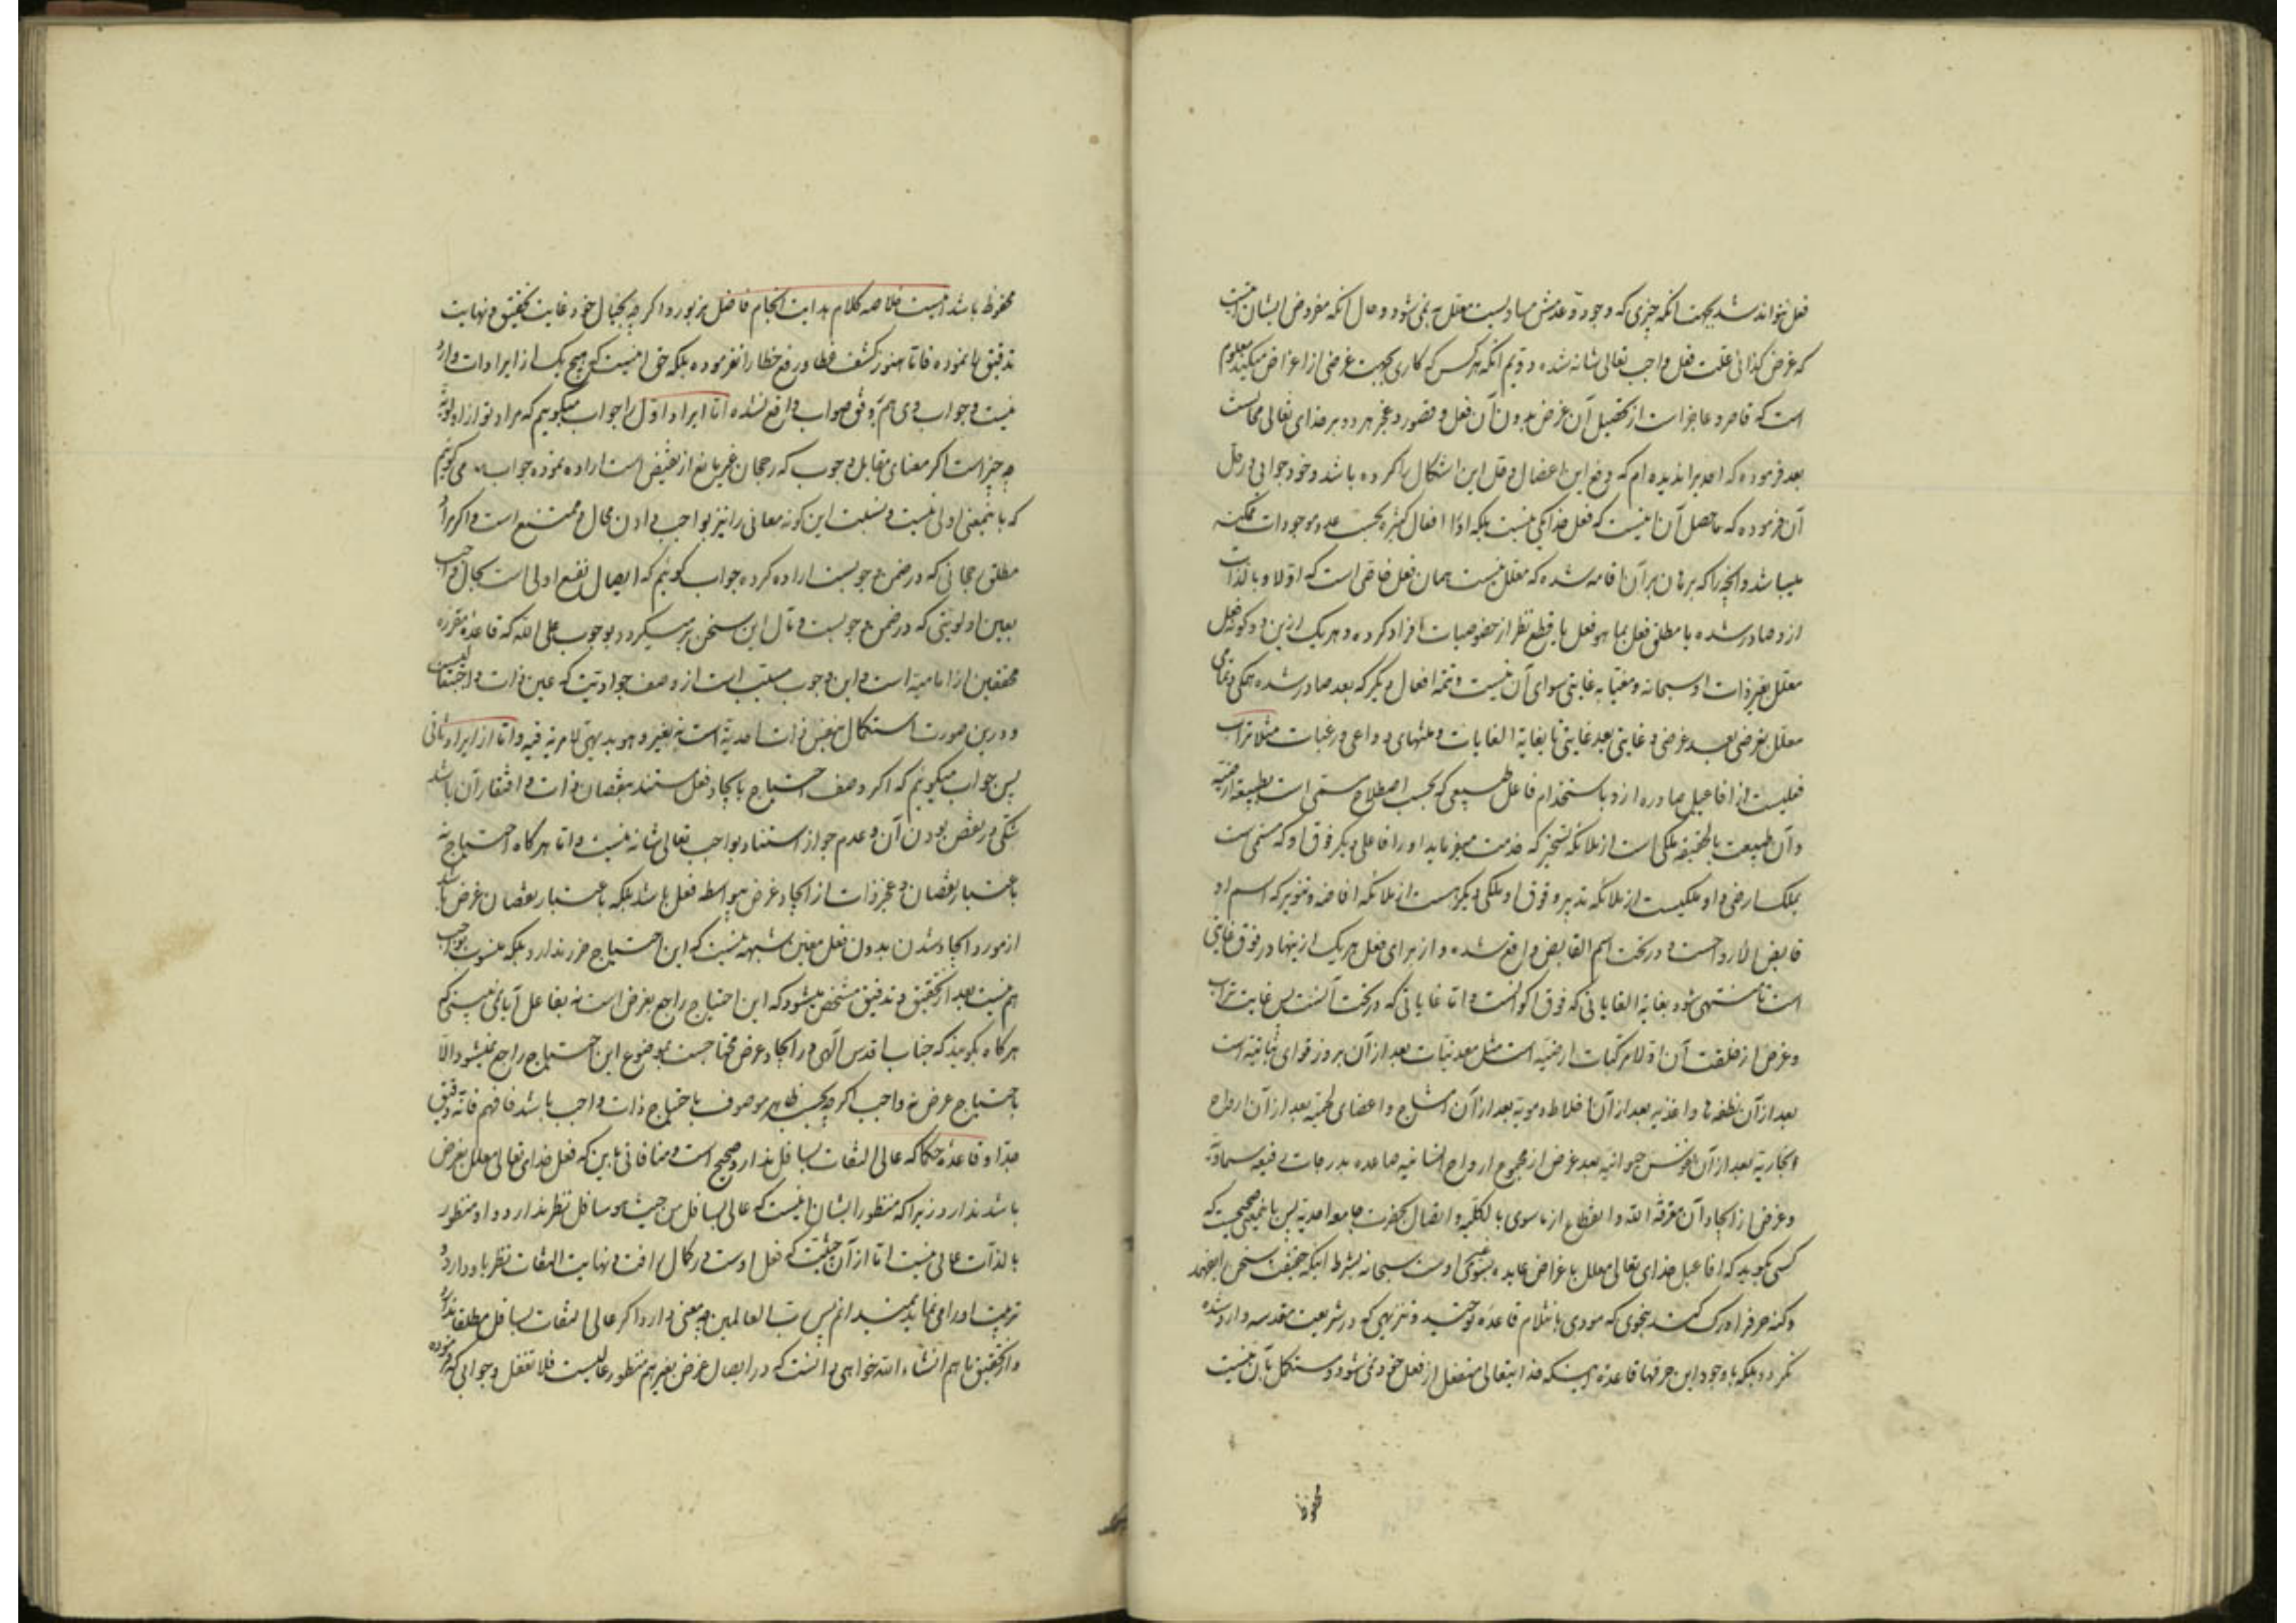 فعل نتواند شد بجهت آنکه چیزی که وجود و عدمش مساویست معلل به نمی‌شود و حال آنکه مفروض ایشان اینست
که غرض کذائی علت فعل واجب تعالی شانه شده دویم آنکه هر کس که کاری بجهت غرضی از اغراض میکند معلوم
است که قاصر و عاجز است از تحصیل آن غرض بدون آن فعل و قصور و عجز هر دو بر خدای تعالی محالست
بعد فرموده که احدیرا ندیده‌ام که رفع این اعضال و حل این اشکال را کرده باشد و خود جوابی در حل
آن فرموده که حاصل آن اینست که فعل خدا یکی نیست بلکه او را افعال کثیره بحسب عدد موجودات ممکنه
میباشد و آنچه را که برهان بر آن اقامه شده که معلل نیست همان فعل خاصی است که اولا و بالذات
ازو صادر شده یا مطلق فعل بما هو فعل با قطع نظر از خصوصیات افراد کرده و هر یک ازین دو گونه فعل
معلل بغیر ذات او سبحانه و مغیا به غایتی سوای آن نیست و تتمه افعال دیگر که بعد صادر شده همگی و تمامی
معلل بغرضی بعد غرضی و غایتی بعد غایتی تا بغایة الغایات و منتهای دواعی و رغبات مثلا تراب
فعلیست از افاعیل صادره ازو باستخدام فاعل طبیعی که بحسب اصطلاح مسمی است بطبیعة ارضیه
و آن طبیعت بالحقیقه ملکی است از ملائکه تسخیر که خدمت میفرماید او را فاعلی دیگر فوق او که مسمی است
بملک ارضی و او ملکیست از ملائکه تدبیر و فوق او ملکی دیگر است از ملائکه افاضه و تنویر که اسم او
قابض الارواحست و در تحت اسم القابض واقع شده و از برای فعل هر یک از ینها در فوق غایتی
است تا منتهی شود بغایة الغایاتی که فوق اکوانست و اما غایاتی که در تحت آنست پس غایت تراب
و غرض از خلقت آن اولا مرکبات ارضیه است مثل معدنیات بعد از آن بروز قوای نباتیه است
بعد از آن نطفه‌ها و اغذیه بعد از آن اخلاط دمویه بعد از آن امشاج و اعضای لحمیه بعد از آن ارواح
بخاریه بعد از آن نفوس حیوانیه بعد غرض از مجموع ارواح انسانیه صاعده بدرجات رفیعه سماویه
و غرض از ایجاد آن معرفة الله و انقطاع از ماسوی بالکلیه و اتصال بحضرت جامعه احدیه پس باینمعنی صحیحست که
کسی بگوید که افاعیل خدای تعالی معلل باغراض عایده بسوی غیر اوست سبحانه بشرط اینکه حقیقت سخن را بفهمد
و کنه حرف را درک کند بنحوی که مودی بانثلام قاعده توحید و تنزیهی که در شریعت مقدسه وارد شده
نگردد بلکه با وجود این حرفها قاعدهٔ اینکه خدا یتعالی منفعل از فعل خود نمی‌شود و مستکمل بآن نیست
محفوظ
محفوظ باشد اینست خلاصه کلام بدایت انجام فاضل مزبور و اگر چه بخیال خود غایت تحقیق و نهایت
تدقیق را نموده فاما هنوز کشف غطا و رفع خطا را نفرموده بلکه حق اینست که هیچ یک از ایرادات وارد
نیست و جواب وی هم بر وفق صواب واقع نشده اما ایراد اول را جواب میگوییم که مراد تو از اولویة
چه چیز است اگر معنای مقابل وجوب که رجحان غیر مانع از نقیض است اراده نموده جواب می گوییم
که باینمعنی اولی نیست و نسبت این گونه معانی را نیز بواجب دادن محال و ممتنع است و اگر مراد
مطلق رجحانی که در ضمن وجوبست اراده کرده جواب گوئیم که ایصال نفع اولی است بحال واجب
بعین اولویتی که در ضمن وجوبست و مآل این سخن بر میگردد بوجوب علی الله که قاعدهٔ مقرره
محققین از امامیه است و این وجوب مسبب است از وصف جوادیت که عین ذات واجبست
و درین صورت استکمال بنفس ذات احدیة است نه بغیر و هو بدیهی لا مریة فیه و اما از ایراد ثانی
پس جواب میگوئیم که اگر وصف احتیاج بایجاد فعل مستند بنقصان ذات و افتقار آن باشد
شکی در نقص بودن آن و عدم جواز استناد بواجب تعالی شانه نیست و اما هر گاه احتیاج نه
باعتبار نقصان و عجز ذات از ایجاد غرض بیواسطه فعل باشد بلکه باعتبار نقصان غرض باشد
از مورد ایجاد شدن بدون فعل معین شبهه نیست که این احتیاج ضرر ندارد بلکه منسوب بواجب
هم نیست بعد از تحقیق و تدقیق مشخص میشود که این احتیاج راجع بغرض است نه بفاعل آیا نمی بینی که
هر گاه بگویند که جناب اقدس الهی در ایجاد عرض محتاجست بموضوع این احتیاج راجع نمیشود الا
باحتیاج عرض نه واجب اگر چه بحسب ظاهر موصوف باحتیاج ذات واجب باشد فافهم فانه دقیق
جدا و قاعده حکما که عالی التفات بسافل ندارد صحیح است و منافاتی باین که فعل خدای تعالی معلل بغرض
باشد ندارد زیرا که منظور ایشان اینست که عالی بسافل من حیث هو سافل نظر ندارد و او منظور
بالذات عالی نیست اما از آن حیثیت که فعل اوست در کمال رافت و نهایت التفات نظر باو دارد و
تربیت او را می نماید نمیدانم پس رب العالمین چه معنی دارد اگر عالی التفات بسافل مطلقا ندارد
و از تحقیق ما هم انشاء الله خواهی دانست که در ایصال غرض بغیر هم منظور عالیست فلا تغفل و جوابی که فرموده